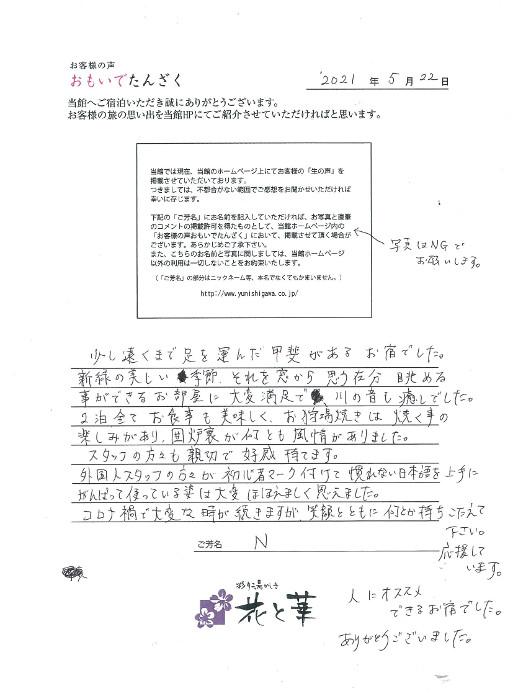 お客様の声
おもいでたんざく
'2021 年 5 月 22 日
当館へご宿泊いただき誠にありがとうございます。
お客様の旅の思い出を当館HPにてご紹介させていただければと思います。
当館では現在、当館のホームページ上にてお客様の『生の声』を
掲載させていただいております。
つきましては、不都合がない範囲でご感想をお聞かせいただければ
幸いに存じます。
下記の「ご芳名」にお名前を記入していただければ、お写真と直筆
のコメントの掲載許可を得たものとして、当館ホームページ内の
「お客様の声おもいでたんざく」において、掲載させて頂く場合が
ございます。あらかじめご了承下さい。
また、こちらのお名前と写真に関しましては、当館ホームページ
以外の利用は一切しないことをお約束いたします。
(「ご芳名」の部分はニックネーム等、本名でなくてもかまいません。)
http://www.yunishigawa.co.jp/
写真はNGで
お願いします。
少し遠くまで足を運んだ甲斐があるお宿でした。
新緑の美しい季節、それを窓から思う存分眺める
事ができるお部屋に大変満足で川の音も癒しでした。
2泊全てお食事も美味しく、お狩場焼きは焼く事の
楽しみがあり、囲炉裏が何とも風情がありました。
スタッフの方々も親切で好感持てます。
外国人スタッフの方々が初心者マーク付けて慣れない日本語を上手に
がんばって使っている姿は大変ほほえましく思えました。
コロナ禍で大変な時が続きますが、笑顔とともに何とか持ちこたえて
下さい。
応援して
います。
ご芳名 N
花と華
人にオススメ
できるお宿でした。
ありがとうございました。